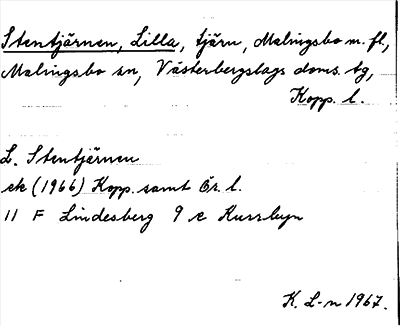 Stentjärnen, Lilla, tjärn, Malingsbo m. fl.,
Malingsbo sn, Västerbergslags doms. tg,
Kopp. l.
L. Stentjärnen
ek (1966) Kopp. samt Ör. l.
11 F Lindesberg 9 e Kursbyn
K. L-n 1967.